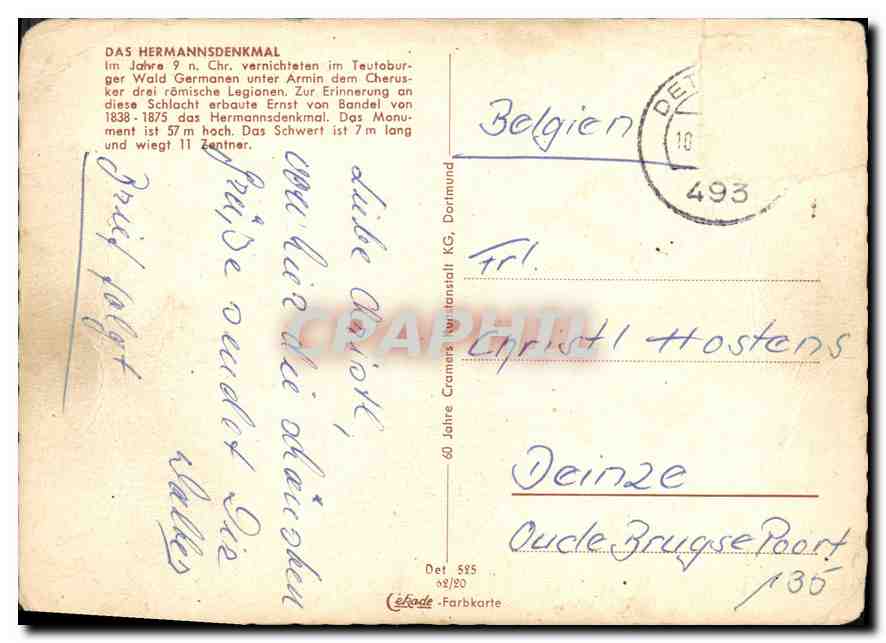 DAS HERMANNSDENKMAL
Im Jahre 9 n. Chr. vernichteten im Teutobur-
ger Wald Germanen unter Armin dem Cherus-
ker drei römische Legionen. Zur Erinnerung an
diese Schlacht erbaute Ernst von Bandel von
1838 - 1875 das Hermannsdenkmal. Das Monu-
ment ist 57 m hoch. Das Schwert ist 7 m lang
und wiegt 11 Zentner.
Liebe Christl,
von hier die schönsten
Grüße sendet Dir
Walter
Brief folgt
60 Jahre Cramers Kunstanstalt KG, Dortmund
Det 525
62/20
Cekade -Farbkarte
DET
10.
493
Belgien
Frl.
Christl Hostens
Deinze
Oude Brugse Poort
135
CPAPHIL